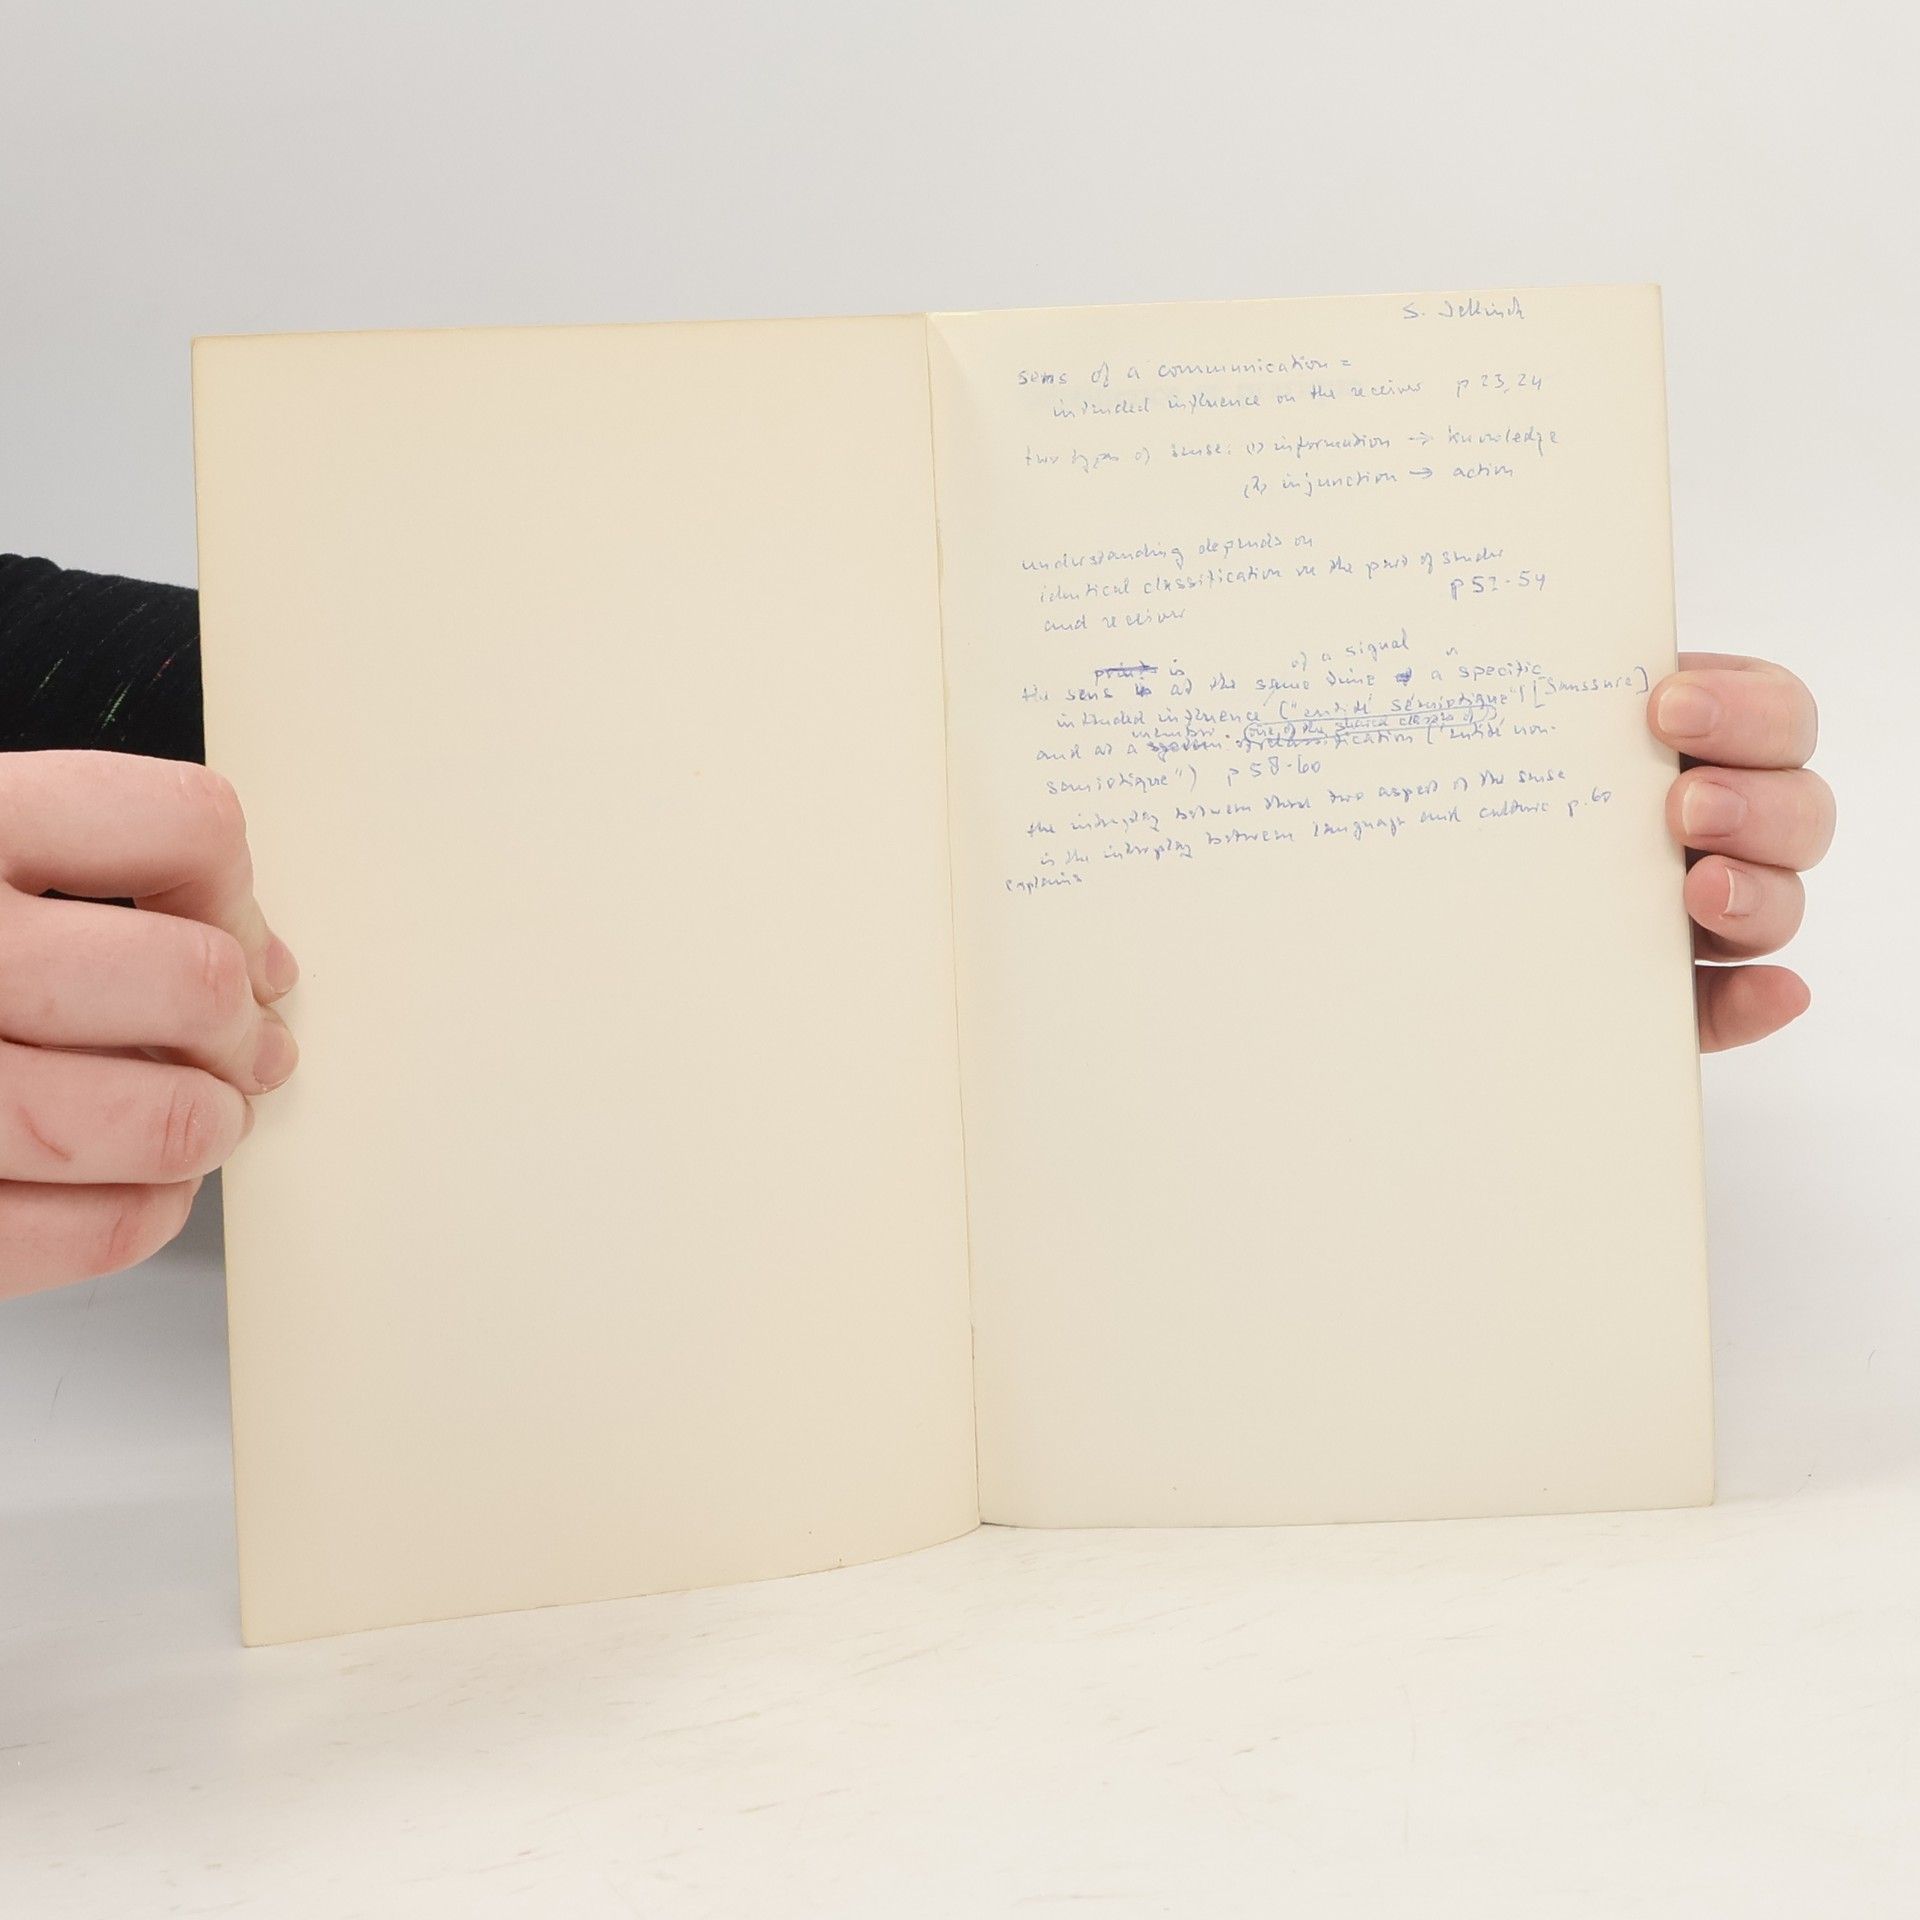 sens of a communication =
intended influence on the receiver p 23, 24
two types of sense: (1) information → knowledge
(2) injunction → action
understanding depends on
identical classification on the part of sender
p 52-54
and receiver
is of a signal
the sens at the same time a specific
intended influence ("entité sémiotique") [Saussure]
member one of the shared classes of
and at a classification ("entité non-
semiotique") p 58-60
the interplay between these two aspect of the sense
is the interplay between language and culture p. 60
explains